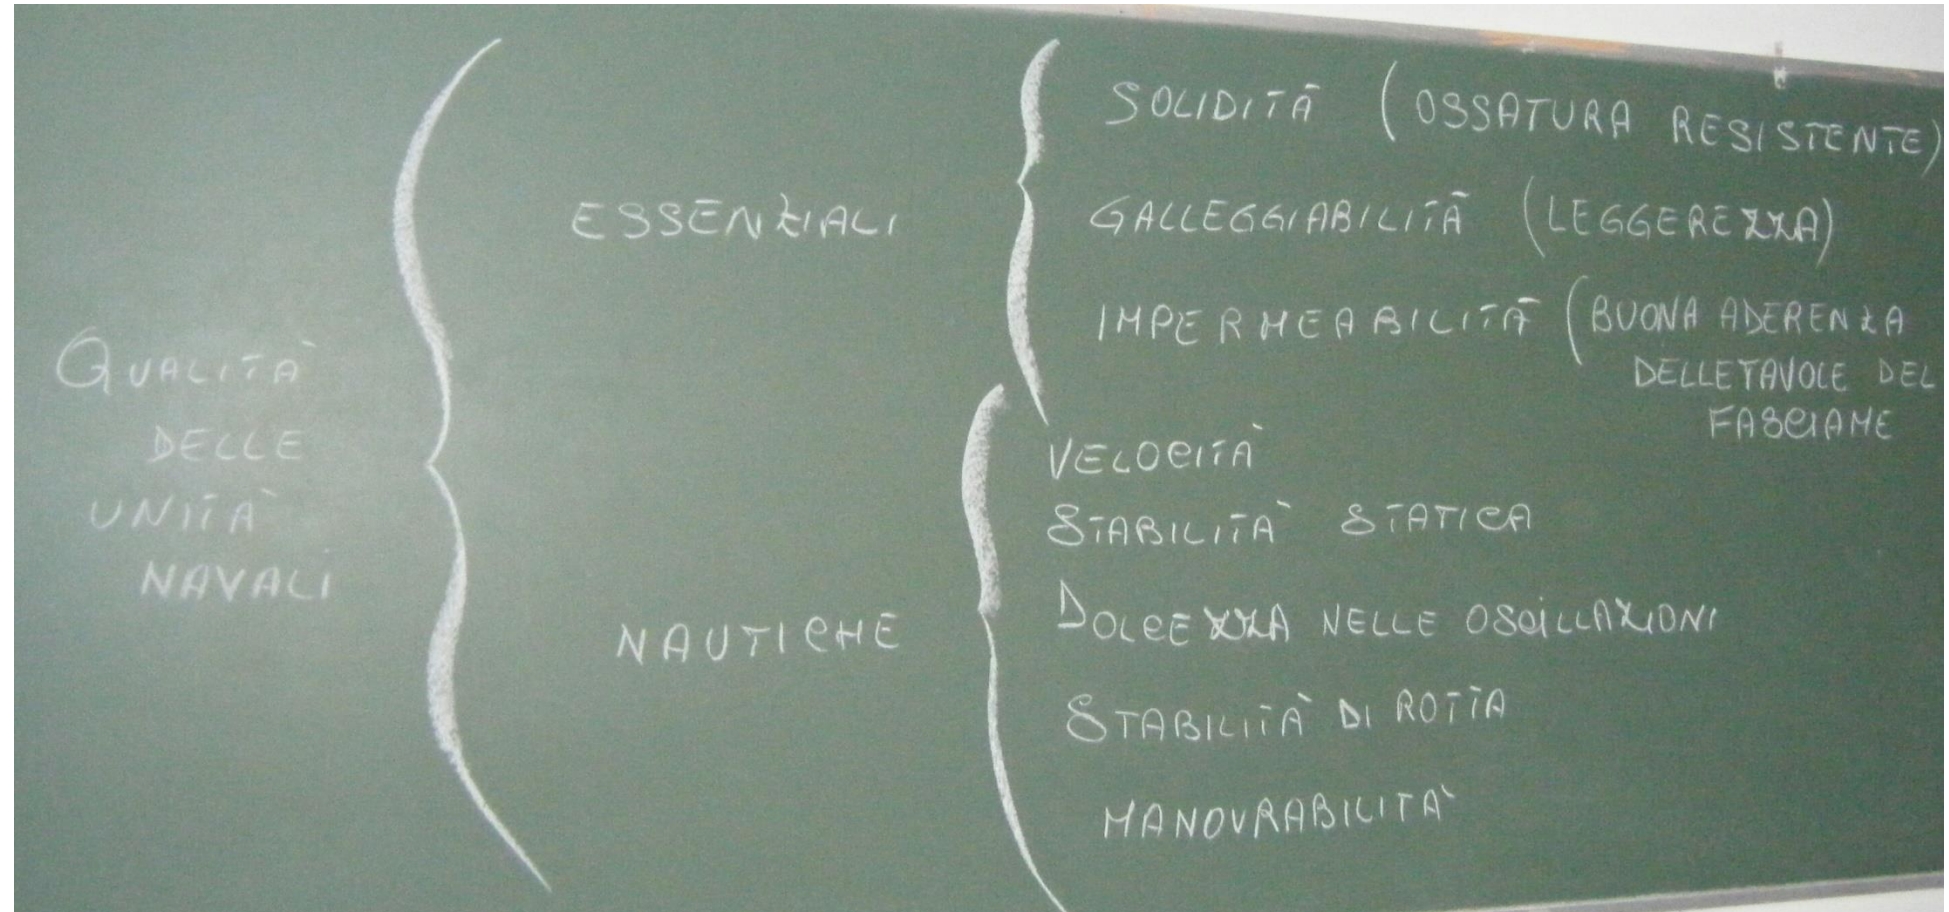 QUALITÀ
DELLE
UNITÀ
NAVALI
ESSENZIALI
SOLIDITÀ (OSSATURA RESISTENTE)
GALLEGGIABILITÀ (LEGGEREZZA)
IMPERMEABILITÀ (BUONA ADERENZA
DELLE TAVOLE DEL
FASCIAME
NAUTICHE
VELOCITÀ
STABILITÀ STATICA
DOLCEZZA NELLE OSCILLAZIONI
STABILITÀ DI ROTTA
MANOVRABILITÀ